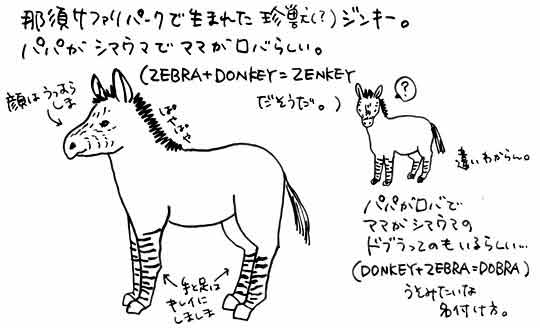 那須サファリパークで生まれた珍獣(?)ジンキー。
パパがシマウマでママがロバらしい。
(ZEBRA+DONKEY=ZENKEY
だそうだ。)
顔はうっすら
しま
ぱやぱや
手と足は
キレイに
しましま
?
違いわからん。
パパがロバで
ママがシマウマの
ドブラってのもいるらしい…
(DONKEY+ZEBRA=DOBRA)
うとみたいな
名付け方。